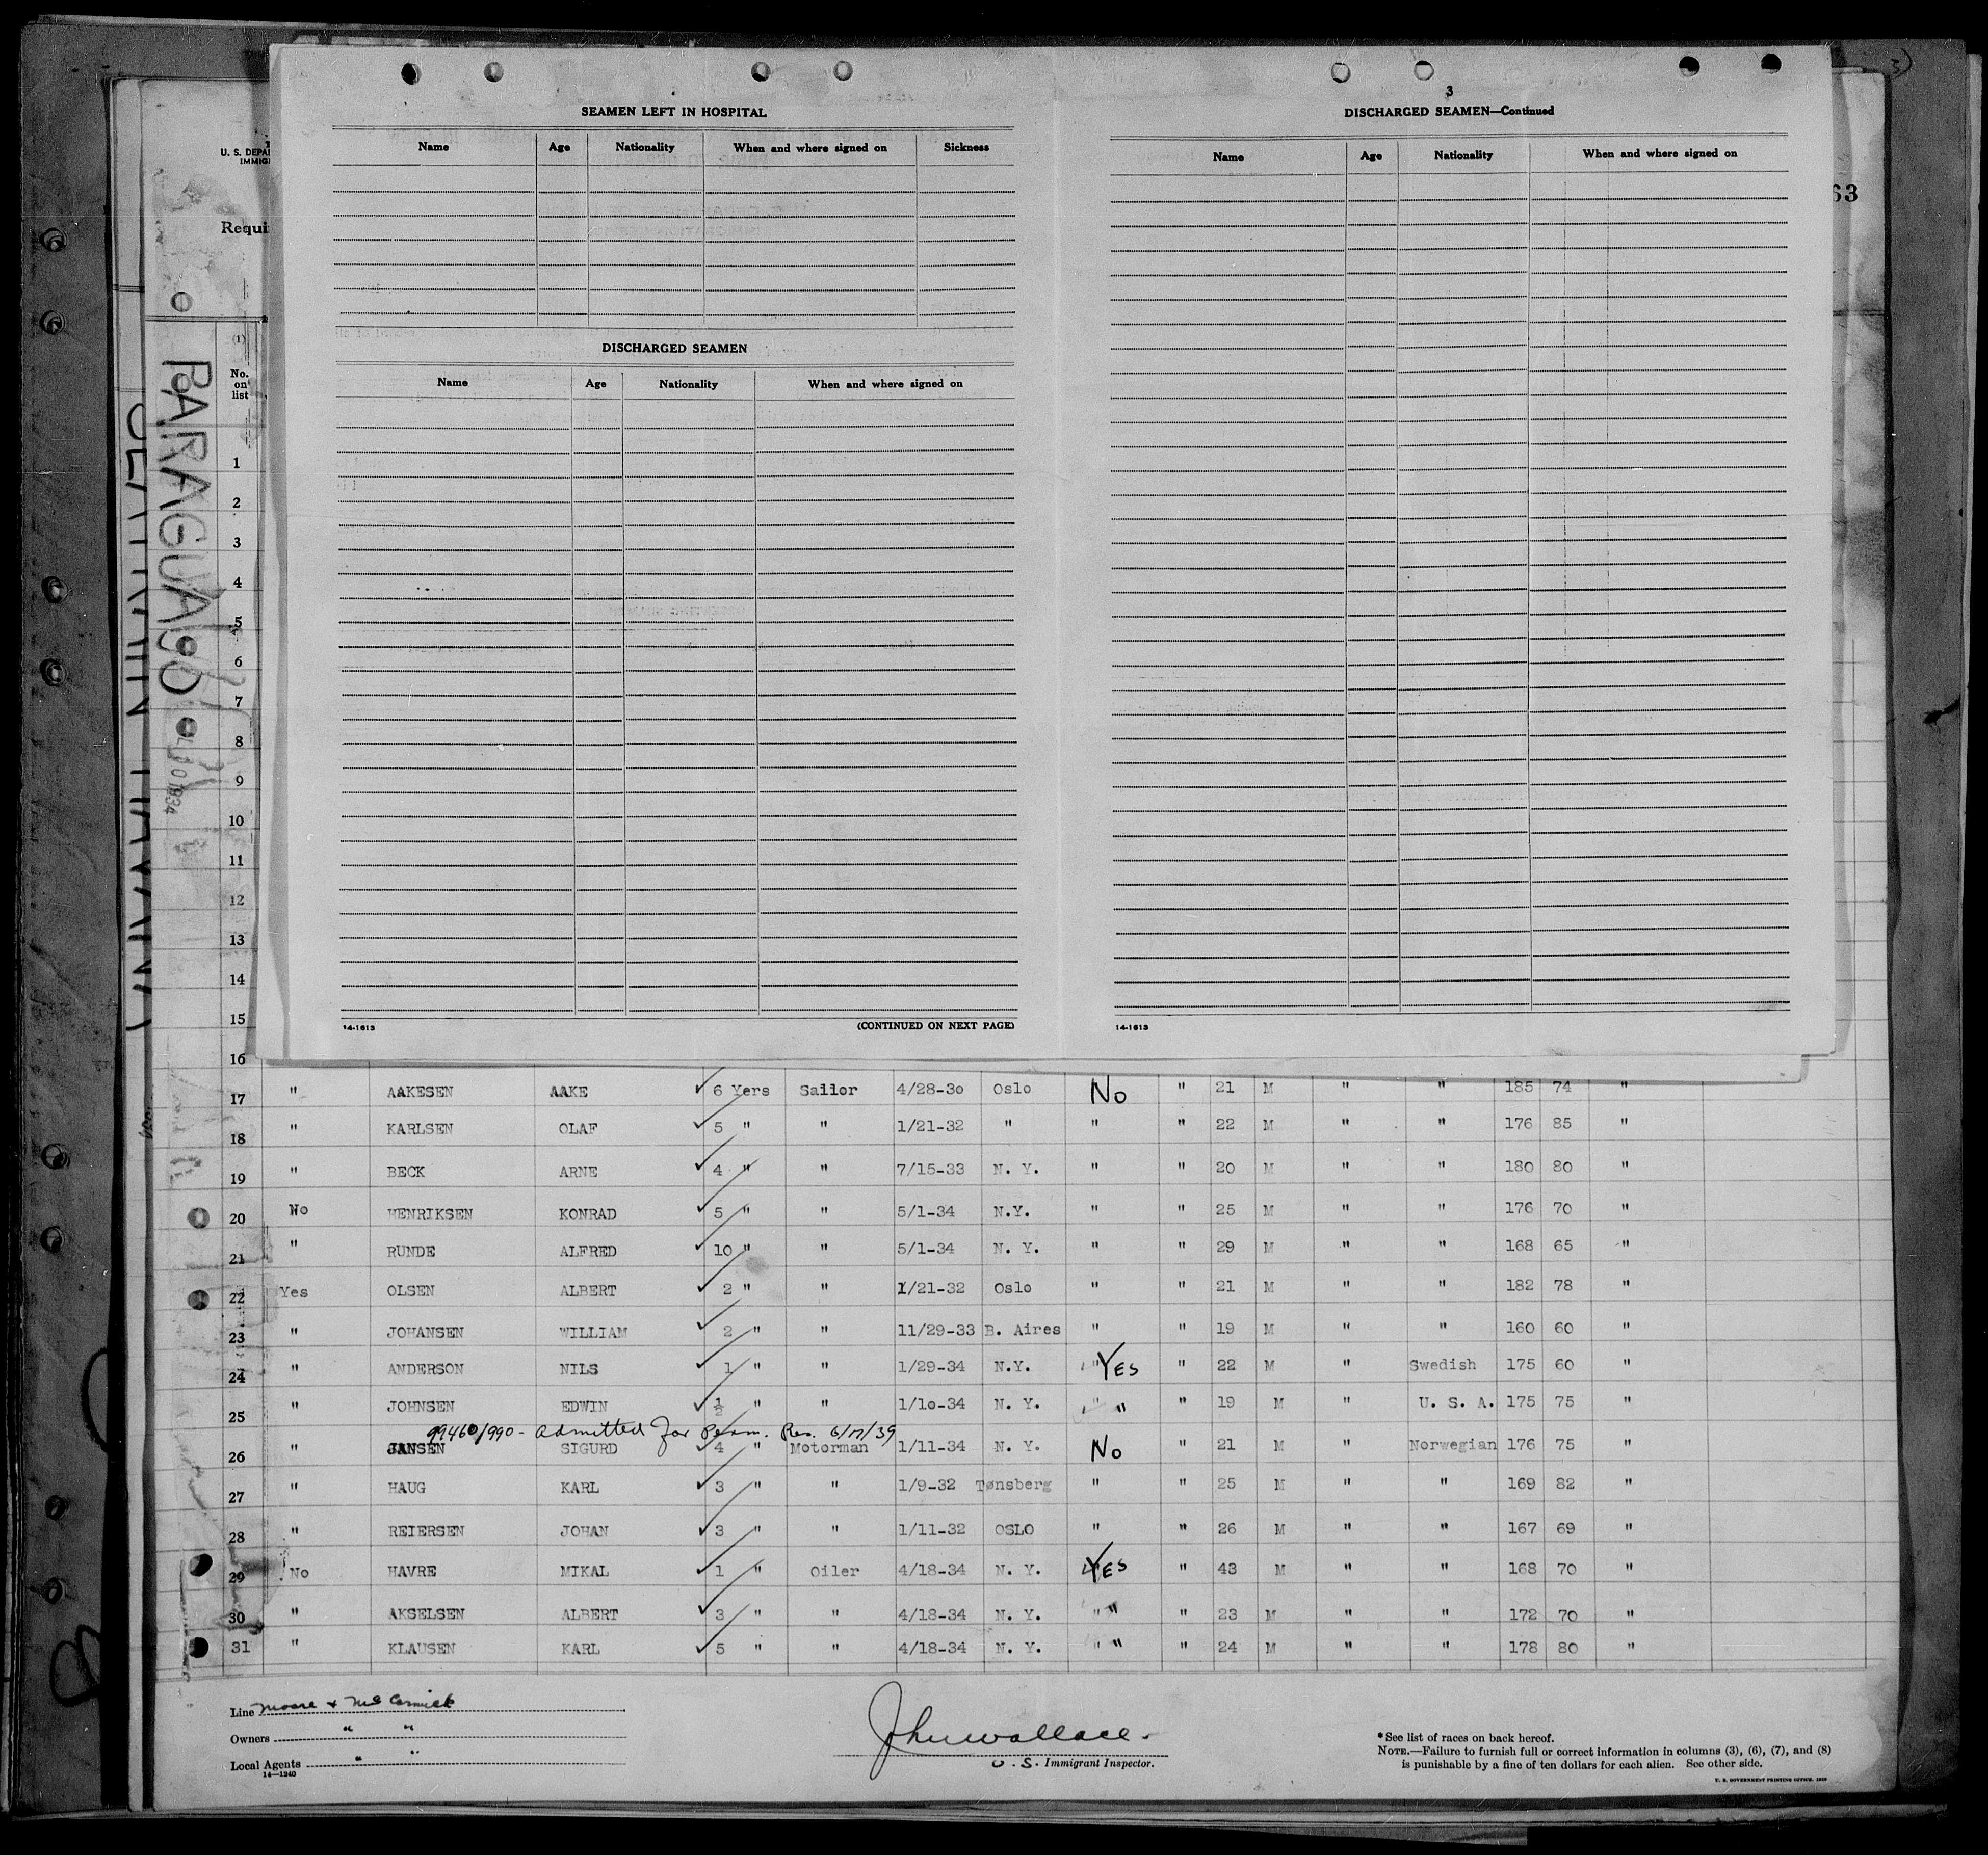 3
SEAMEN LEFT IN HOSPITAL
Name Age Nationality When and where signed on Sickness
DISCHARGED SEAMEN
Name Age Nationality When and where signed on
14-1613 (CONTINUED ON NEXT PAGE)
DISCHARGED SEAMEN—Continued
Name Age Nationality When and where signed on
14-1613
U. S. DEPA
IMMIG
Requi
63
PARAGUAYO
(1)
No.
on
list
1
2
3
4
5
6
7
8
9
10
11
12
13
14
15
16
17 " AAKESEN AAKE ✓ 6 Yers Sailor 4/28-30 Oslo No " 21 M " " 185 74 "
18 " KARLSEN OLAF ✓ 5 " " 1/21-32 " " " 22 M " " 176 85 "
19 " BECK ARNE ✓ 4 " " 7/15-33 N. Y. " " 20 M " " 180 80 "
20 No HENRIKSEN KONRAD ✓ 5 " " 5/1-34 N.Y. " " 25 M " " 176 70 "
21 " RUNDE ALFRED ✓ 10 " " 5/1-34 N. Y. " " 29 M " " 168 65 "
22 Yes OLSEN ALBERT ✓ 2 " " 1/21-32 Oslo " " 21 M " " 182 78 "
23 " JOHANSEN WILLIAM ✓ 2 " " 11/29-33 B. Aires " " 19 M " " 160 60 "
24 " ANDERSON NILS ✓ 1 " " 1/29-34 N.Y. YES " 22 M " Swedish 175 60 "
25 " JOHNSEN EDWIN ✓ ½ " " 1/10-34 N. Y. " " 19 M " U. S. A. 175 75 "
99460/990 - Admitted for Perm. Res. 6/17/39
26 " JANSEN SIGURD ✓ 4 " Motorman 1/11-34 N. Y. No " 21 M " Norwegian 176 75 "
27 " HAUG KARL ✓ 3 " " 1/9-32 Tønsberg " " 25 M " " 169 82 "
28 " REIERSEN JOHAN ✓ 3 " " 1/11-32 OSLO " " 26 M " " 167 69 "
29 No HAVRE MIKAL ✓ 1 " Oiler 4/18-34 N. Y. YES " 43 M " " 168 70 "
30 " AKSELSEN ALBERT ✓ 3 " " 4/18-34 N. Y. " " 23 M " " 172 70 "
31 " KLAUSEN KARL ✓ 5 " " 4/18-34 N. Y. " " 24 M " " 178 80 "
Line Moore & McCormick
Owners " "
Local Agents " "
14—1240
John Wallace
U. S. Immigrant Inspector.
*See list of races on back hereof.
NOTE.—Failure to furnish full or correct information in columns (3), (6), (7), and (8)
is punishable by a fine of ten dollars for each alien. See other side.